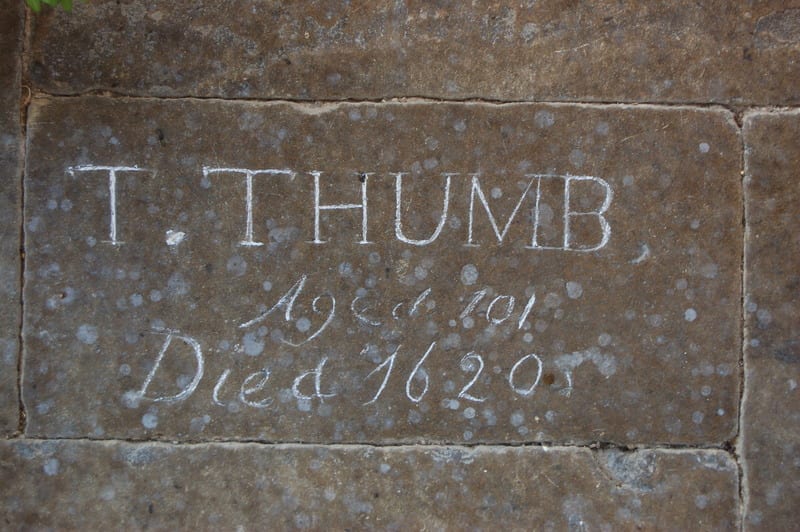 T. THUMB
Aged 101
Died 1620